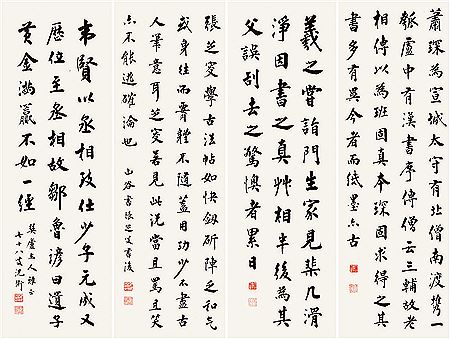 蕭琛為宣城太守有北僧南渡攜一
瓠盧中有漢書序傳僧云三輔故老
相傳以為班固真本琛固求得之其
書多有異今者而紙墨亦古
羲之嘗詣門生家見棐几滑
淨因書之真艸相半後為其
父誤刮去之驚懊者累日
張芝叟學古法帖如快劍斫陣乏和氣
或身往而臂體不隨蓋用功少不盡古
人筆意耳芝叟善見此況當且罵且笑
亦不能逃確論也 山谷書張芝叟書後
韋賢以丞相致仕少子元成又
歷位至丞相故鄒魯諺曰遺子
黃金滿籯不如一經
巽廬主人雅正
七十八叟沈衛